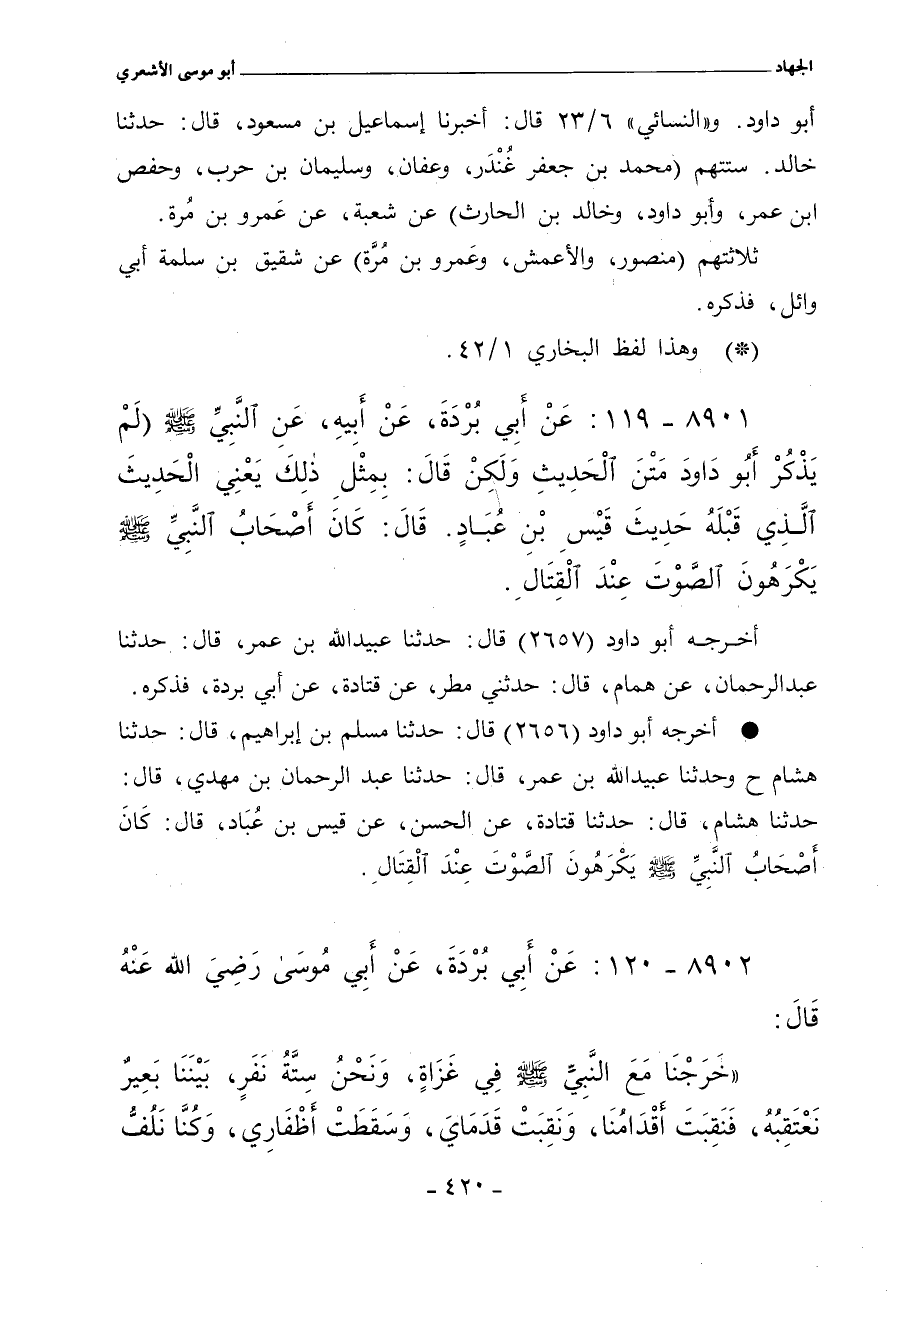 الجهاد ـــــــــــــــــــ أبو موسى الأشعري
أبو داود. و«النسائي» ٢٣/٦ قال: أخبرنا إسماعيل بن مسعود، قال: حدثنا
خالد. ستتهم (محمد بن جعفر غُنْدَر، وعفان، وسليمان بن حرب، وحفص
ابن عمر، وأبو داود، وخالد بن الحارث) عن شعبة، عن عَمرو بن مُرة.
ثلاثتهم (منصور، والأعمش، وعَمرو بن مُرَّة) عن شقيق بن سلمة أبي
وائل، فذكره.
(*) وهذا لفظ البخاري ٤٢/١.
٨٩٠١ - ١١٩: عَنْ أَبي بُرْدَةَ، عَنْ أَبِيهِ، عَنِ ٱلنَّبِيِّ ﷺ (لَمْ
يَذْكُرْ أَبُو دَاودَ مَتْنَ ٱلْحَدِيثِ وَلَكِنْ قَالَ: بِمِثْلِ ذٰلِكَ يَعْنِي الْحَدِيثَ
ٱلَّذِي قَبْلَهُ حَدِيثَ قَيْسِ بْنِ عُبَادٍ. قَالَ: كَانَ أَصْحَابُ ٱلنَّبِيِّ ﷺ
يَكْرَهُونَ ٱلصَّوْتَ عِنْدَ ٱلْقِتَالِ.
أخرجه أبو داود (٢٦٥٧) قال: حدثنا عبيدالله بن عمر، قال: حدثنا
عبدالرحمان، عن همام، قال: حدثني مطر، عن قتادة، عن أبي بردة، فذكره.
● أخرجه أبو داود (٢٦٥٦) قال: حدثنا مسلم بن إبراهيم، قال: حدثنا
هشام ح وحدثنا عبيدالله بن عمر، قال: حدثنا عبد الرحمان بن مهدي، قال:
حدثنا هشام، قال: حدثنا قتادة، عن الحسن، عن قيس بن عُبَاد، قال: كَانَ
أَصْحَابُ ٱلنَّبِيِّ ﷺ يَكْرَهُونَ ٱلصَّوْتَ عِنْدَ ٱلْقِتَالِ.
٨٩٠٢ - ١٢٠: عَنْ أَبي بُرْدَةَ، عَنْ أَبِي مُوسَىٰ رَضِيَ الله عَنْهُ
قَالَ:
«خَرَجْنَا مَعَ النَّبِيِّ ﷺ فِي غَزَاةٍ، وَنَحْنُ سِتَّةُ نَفَرٍ، بَيْنَنَا بَعِيرٌ
نَعْتَقِبُهُ، فَنَقِبَتْ أَقْدَامُنَا، وَنَقِبَتْ قَدَمَايَ، وَسَقَطَتْ أَظْفَارِي، وَكُنَّا نَلُفُّ
- ٤٢٠ -